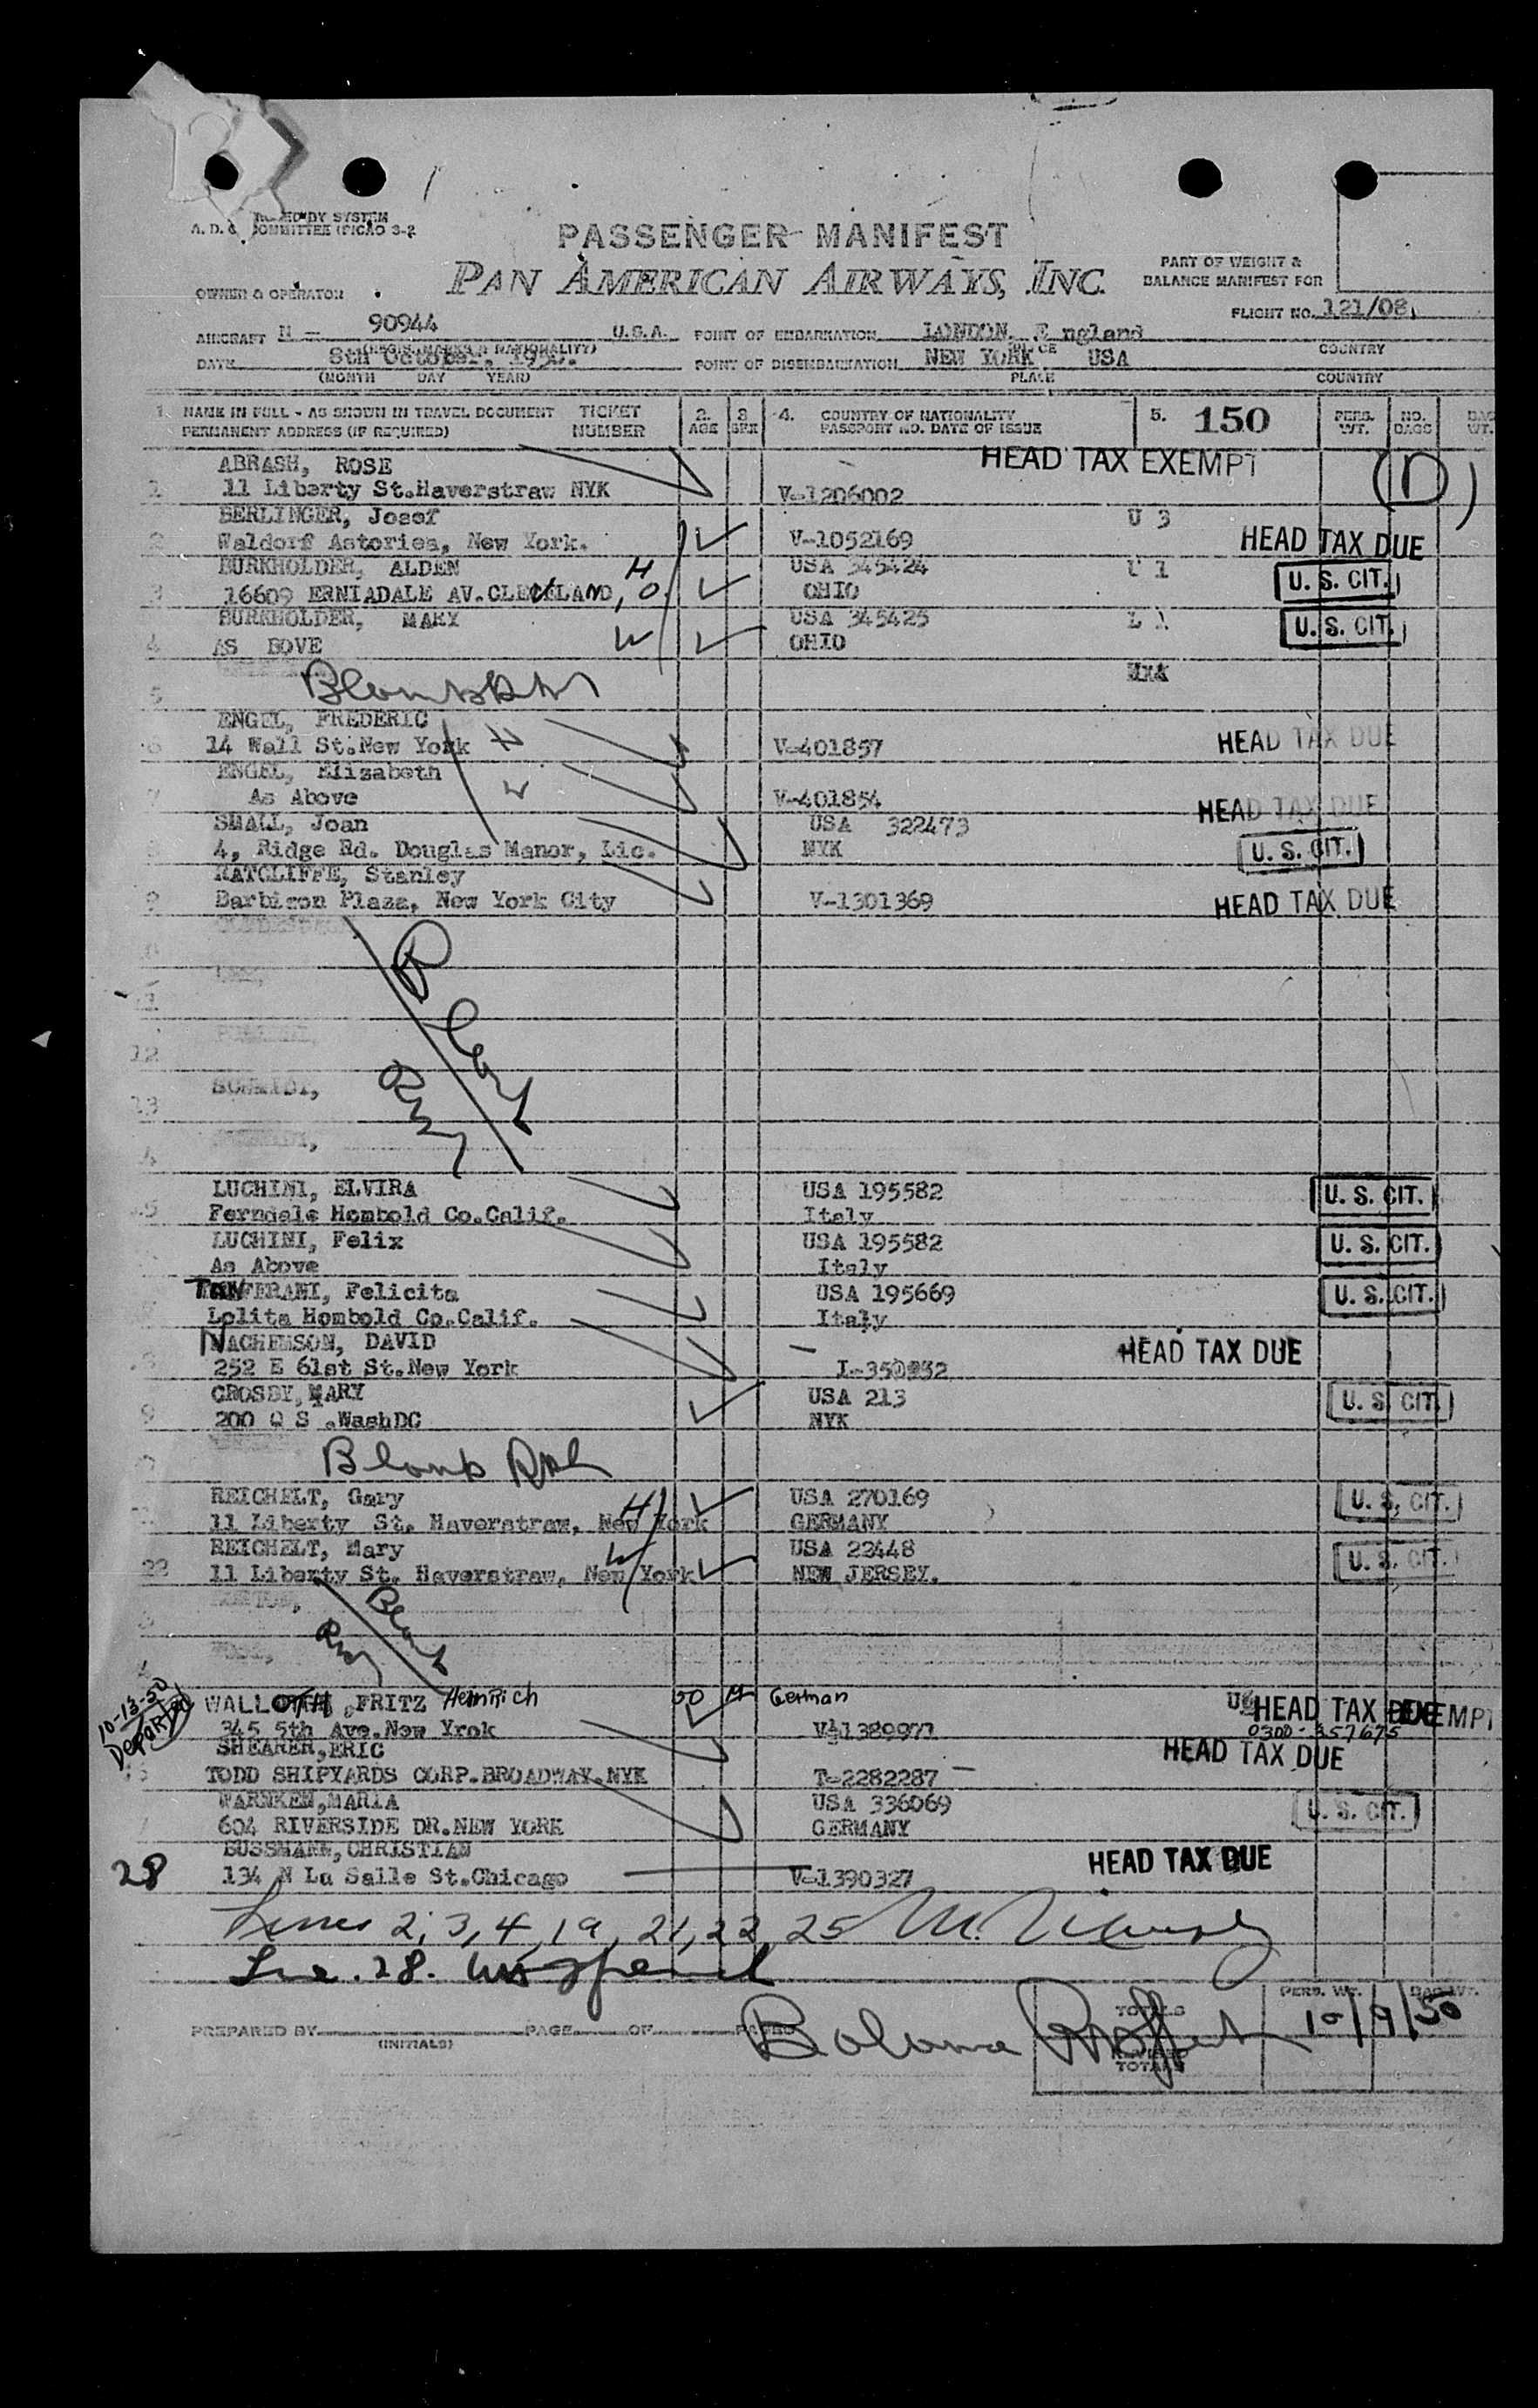 A. D. & COMMITTEE (PICAO 3-2
PASSENGER MANIFEST
PAN AMERICAN AIRWAYS, INC.
PART OF WEIGHT &
BALANCE MANIFEST FOR
OWNER & OPERATOR
FLIGHT NO. 121/08.
AIRCRAFT N - 90944 U.S.A. POINT OF EMBARKATION LONDON, E ngland
COUNTRY
DATE 8th October, POINT OF DISEMBARKATION NEW YORK USA
(MONTH DAY YEAR) PLACE COUNTRY
1. NAME IN FULL - AS SHOWN IN TRAVEL DOCUMENT TICKET 2. 3. 4. COUNTRY OF NATIONALITY 5. 150 PERS. NO.
PERMANENT ADDRESS (IF REQUIRED) NUMBER AGE SEX PASSPORT NO. DATE OF ISSUE WT. BAGS WT.
ABRASH, ROSE HEAD TAX EXEMPT
1 11 Liberty St.Haverstraw NYK V-1206002 (D)
BERLINGER, Josef U 3
2 Waldorf Astoriea, New York. V-1052169 HEAD TAX DUE
BURKHOLDER, ALDEN H USA 345424 U 1
3 16609 ERNIADALE AV.CLEVELAND, O. OHIO U. S. CIT.
BURKHOLDER, MARY USA 345425
4 AS BOVE W OHIO U. S. CIT.
5 Blank
ENGEL, FREDERIC
6 14 Wall St.New York H V-401857 HEAD TAX DUE
ENGEL, Elizabeth
7 As Above W V-401854 HEAD TAX DUE
SMALL, Joan USA 322473
4, Ridge Rd. Douglas Manor, Lic. NYK U. S. CIT.
RATCLIFFE, Stanley
9 Barbison Plaza, New York City V-1301369 HEAD TAX DUE
12
SCHMIDT,
13
Blank
LUCHINI, ELVIRA USA 195582 U. S. CIT.
Ferndale Hombold Co.Calif. Italy
LUCHINI, Felix USA 195582 U. S. CIT.
As Above Italy
TANFERANI, Felicita USA 195669 U. S. CIT.
Lolita Hombold Co.Calif. Italy
NACHEMSON, DAVID HEAD TAX DUE
252 E 61st St.New York
CROSBY, MARY USA 213 U. S. CIT.
9 200 Q S .WashDC NYK
Blank
REICHELT, Gary USA 270169 U. S. CIT.
11 Liberty St. Haverstraw, New York H GERMANY
REICHELT, Mary USA 22448 U. S. CIT.
22 11 Liberty St. Haverstraw, New York W NEW JERSEY.
Blank
10-13-50
DEPARTED
WALLOTH, FRITZ Heinrich 50 M German HEAD TAX EXEMPT
345 5th Ave.New Yrok V-1389971 0300-357675
SHEARER,ERIC HEAD TAX DUE
TODD SHIPYARDS CORP.BROADWAY.NYK T-2282287
WARNKEN,MARIA USA 336069 U. S. CIT.
604 RIVERSIDE DR.NEW YORK GERMANY
BUSSMANN,CHRISTIAN HEAD TAX DUE
28 134 N La Salle St.Chicago V-1390327
Lines 2, 3, 4, 19, 21, 22, 25
Line 28.
PERS. WT.
PREPARED BY PAGE OF TOTALS 10/9/50
(INITIALS)
Balance
TOTALS